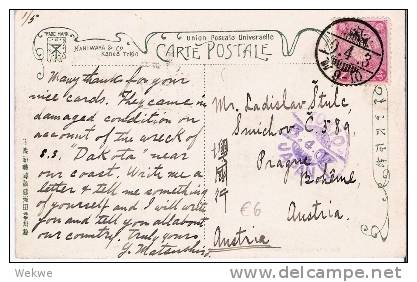 1/5
TRADE MARK
HANIWAYA & CO
Kanda Tokio
Union Postale Universelle
CARTE POSTALE
Many thanks for your
nice cards. They came in
damaged condition on
account of the wreck of
s.s. "Dakota" near
our coast. Write me a
letter & tell me something
of yourself and I will write
you and tell you all about
our country. Truly yours,
Y. Matsushi
Mr. Ladislav Štulc
Smichov Č. 589,
Prague
Bohême,
Austria.
Austria
€6
Wekwe
delcampe.net